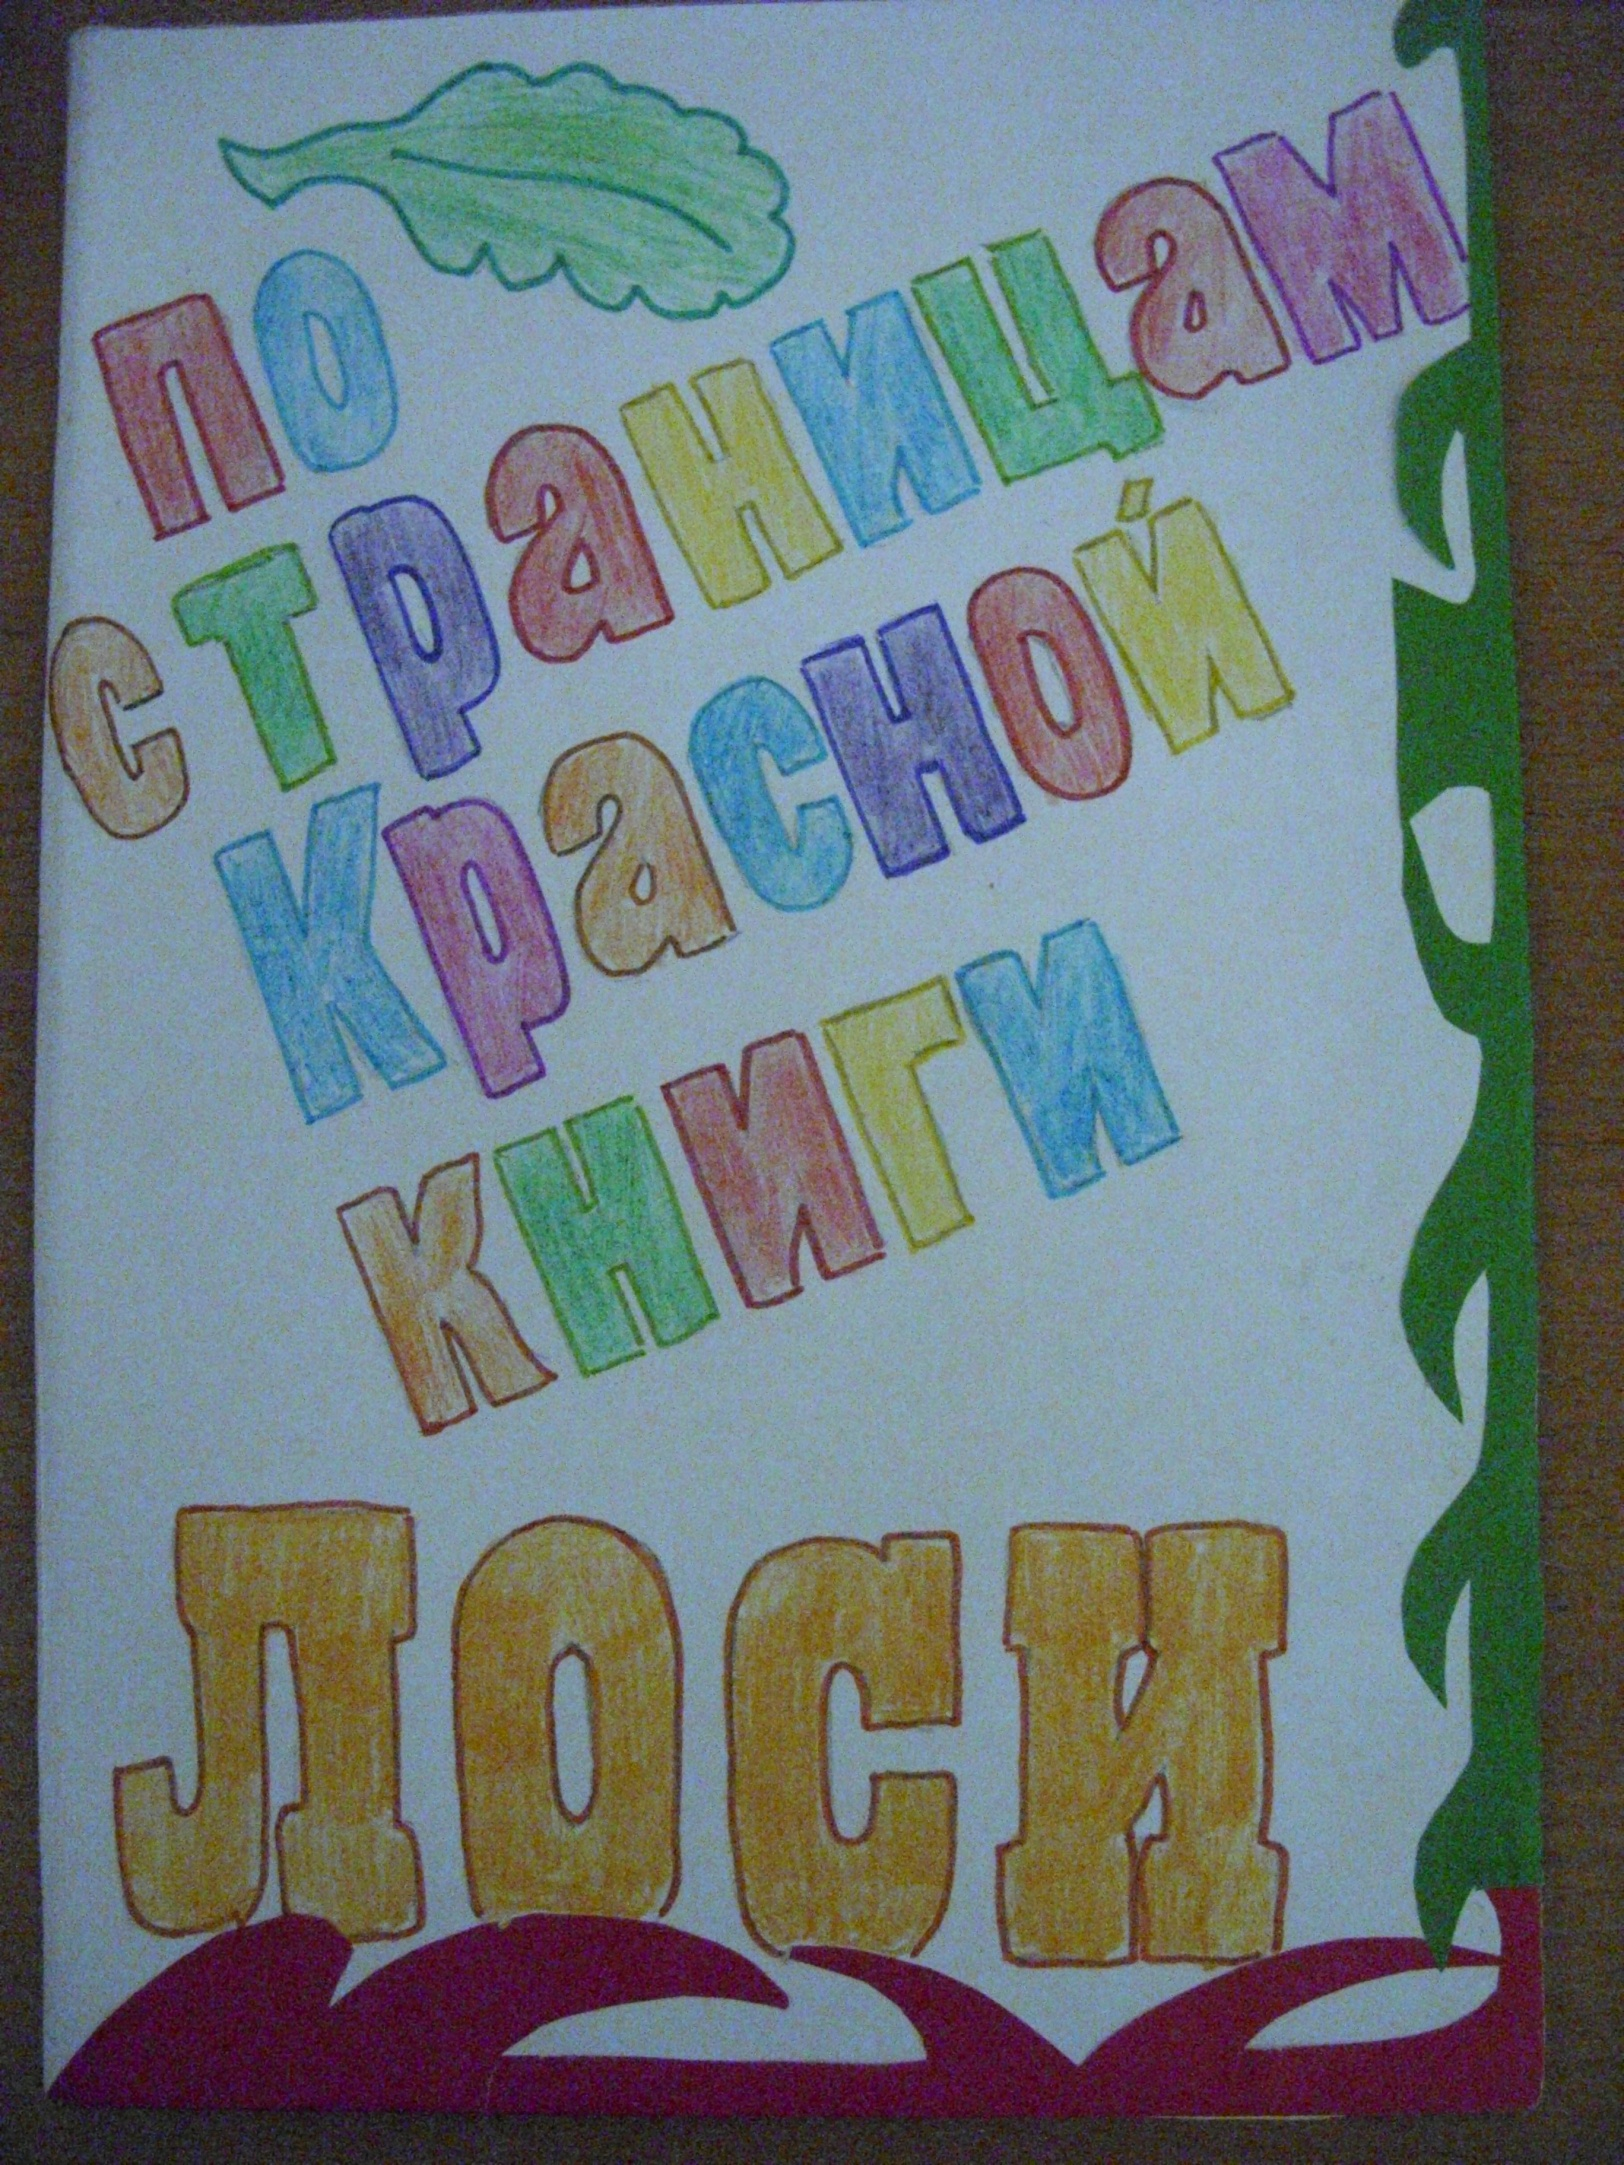 по
страницам
Красной
книги
ЛОСИ